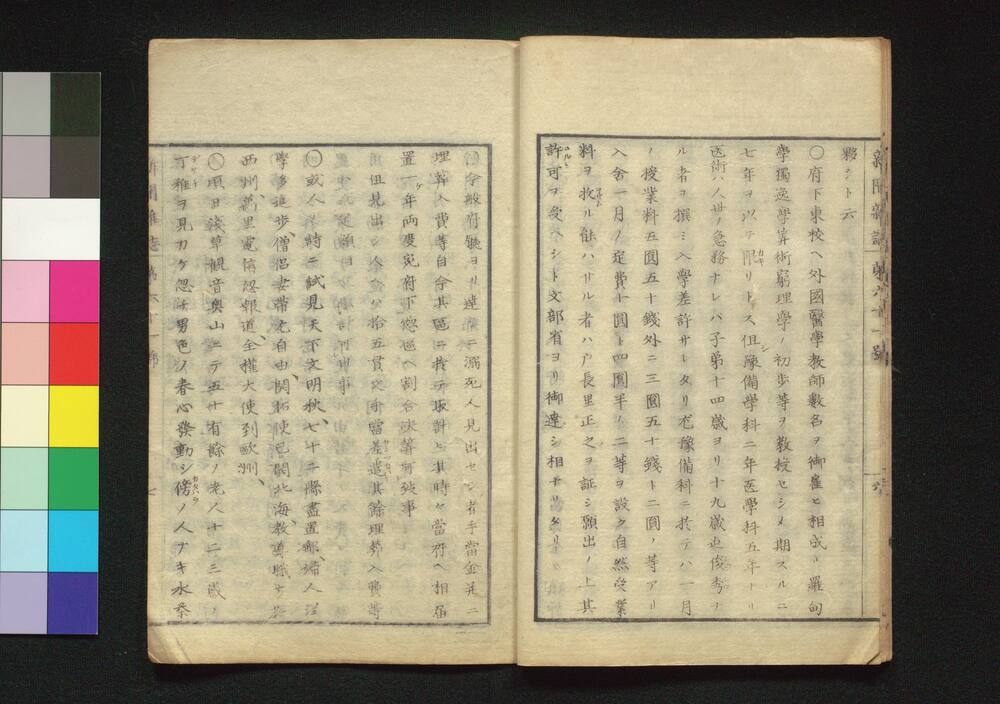 新聞雑誌 第六十一号
夥シト云
〇府下東校ヘ外國醫學教師數名ヲ御雇ヒ相成リ羅甸
學獨逸學算術窮理學ノ初歩等ヲ教授セシメ期スルニ
七年ヲ以テ限リトス但豫備學科二年医學科五年ナリ
医術ハ人世ノ急務ナレバ子弟十四歳ヨリ十九歳迄俊秀ナ
ル者ヲ撰ミ入學差許サレタリ尤豫備科ニ於テハ一月
ノ授業料五圓五十錢外ニ三圓五十錢ト二圓ノ等アリ
入舎一月ノ定費十圓ト四圓半ノ二等ヲ設ク自然受業
料ヲ収ル能ハサル者ハ戸長里正之ヲ証シ願出ノ上其
許可ヲ受ヘシト文部省ヨリ御達シ相ナリタリ
今般府廳ヨリ達
溺死人見出セシ者手當金並ニ
埋葬入費等自今其區ニ於テ取計ヒ其時々當府ヘ相届
置一年両度宛府下惣區ヘ割合決算可致事
但見出シ人ヘ金拾五貫文
其餘理葬入費等
〇或人ノ詩ニ試見天下文明秋、七十二縣盡置郵、婦人洋
學多進歩、僧侶妻帯亦自由、開拓使已開北海、教導職
西州、萬里電信忽報道、全權大使到歐洲、
〇頃日浅草観音奥山ニテ五十有餘ノ老人十二三歳ノ
丁稚ヲ見カケ忽チ男色ノ春心發動シ傍ノ人ナキ水茶
新聞雑誌 第六十一号 七